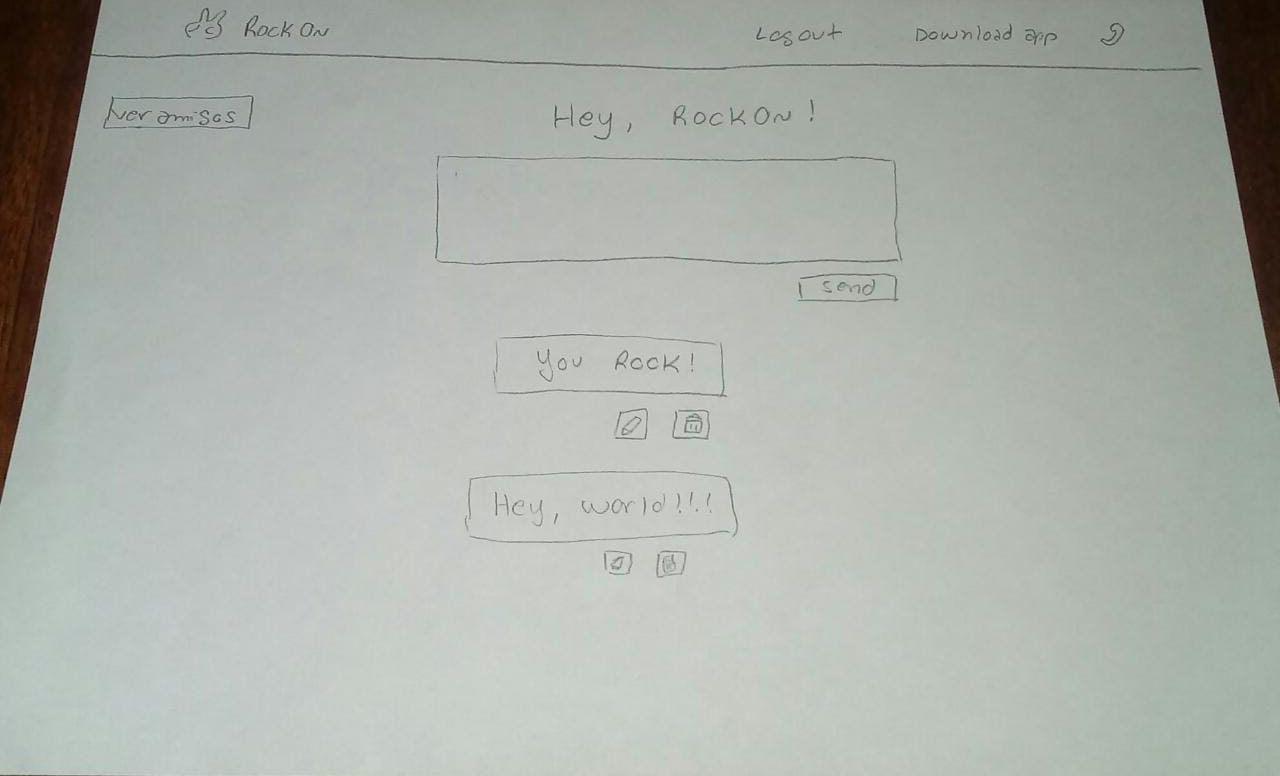 Rock On
Logout
Download app
Ver amigas
Hey, Rock On!
send
You Rock!
Hey, world!!!